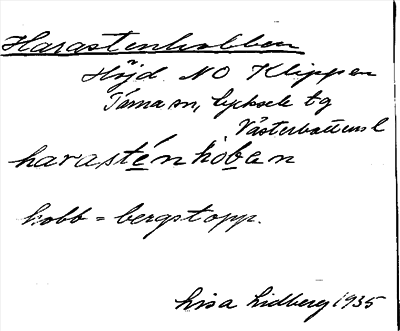 Harastenkobben
Höjd NO Klippen
Tärna sn, Lycksele tg
Västerbottens l
harasténkòban
kobb = bergstopp.
Lisa Lidberg 1935